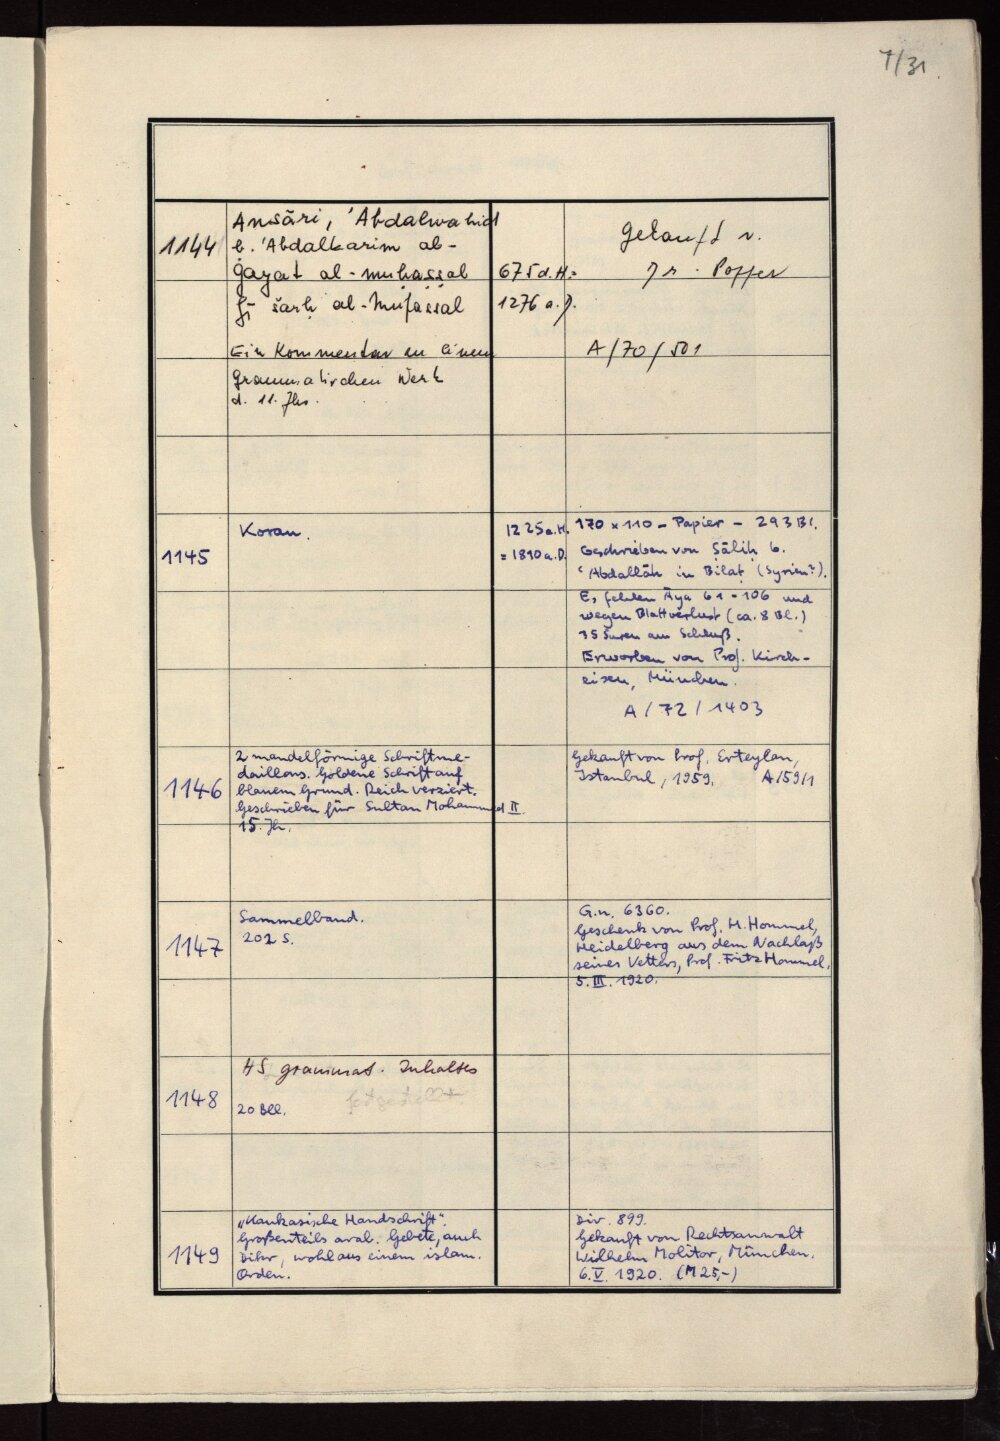 1/31
1144
Anṣāri, 'Abdalwahid
b. 'Abdalkarim al-
Ġayat al-muḥaṣṣal
fī šarḥ al-Mufaṣṣal
Ein Kommentar zu einem
grammatischen Werk
d. 11. Jhs.
675 d.H. =
1276 a.D.
Gekauft v.
Dr.
A/70/501
1145
Koran.
1225 a.H.
= 1810 a.D.
170 x 110 - Papier - 293 Bl.
Geschrieben von Ṣāliḥ b.
'Abdallāh in Bilat (Syrien?).
Es fehlen Āya 61-106 und
wegen Blattverlust (ca. 8 Bl.)
35 Suren am Schluß.
Erworben von Prof. Kirch-
eisen, München.
A/72/1403
1146
2 mandelförmige Schriftme-
daillons. Goldene Schrift auf
blauem Grund. Reich verziert.
Geschrieben für Sultan Mohammed II.
15. Jh.
Gekauft von Prof. Erteylan,
Istanbul, 1959. A/59/1
1147
Sammelband.
202 S.
G.n. 6360.
Geschenk von Prof. H. Hommel,
Heidelberg aus dem Nachlaß
seines Vetters, Prof. Fritz Hommel,
5. III. 1920.
1148
HS grammat. Inhaltes
20 Bll. festgestellt
1149
„Kaukasische Handschrift".
Großenteils arab. Gebete, auch
Ḏikr, wohl aus einem islam.
Orden.
Div. 899.
Gekauft von Rechtsanwalt
Wilhelm Molitor, München.
6. V. 1920. (M 25,-)